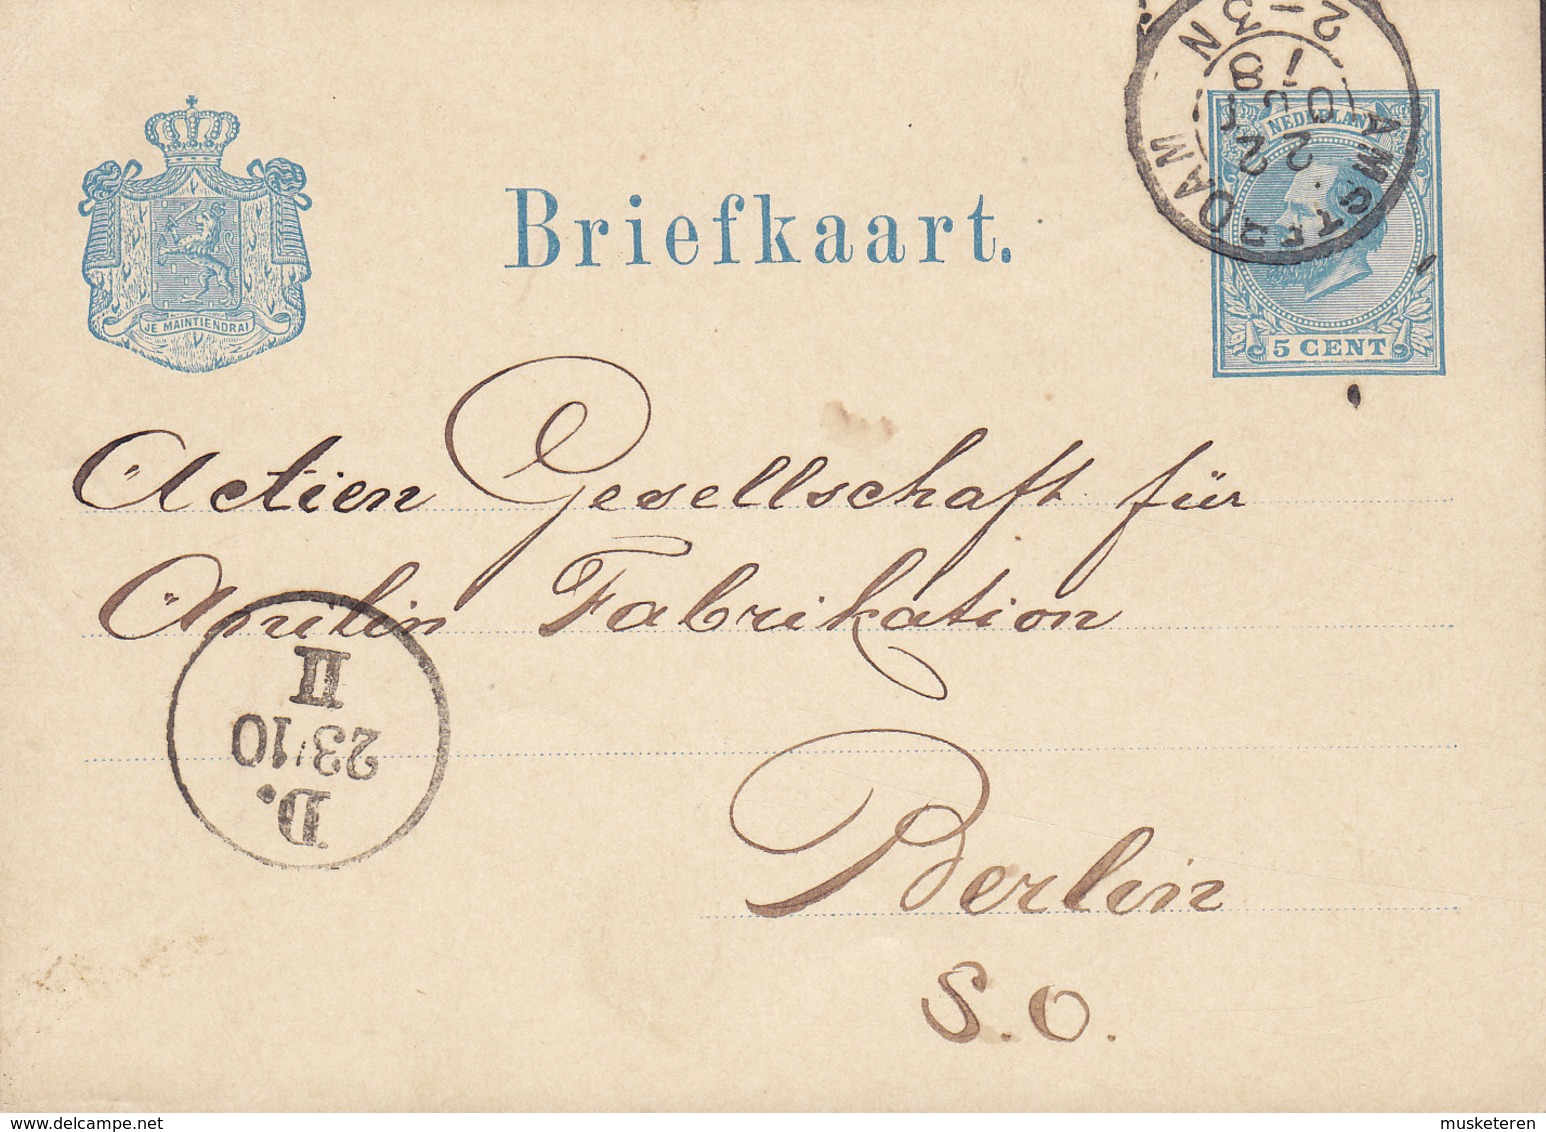 NEDERLAND
AMSTERDAM
2-3N
22 OCT
81
JE MAINTIENDRAI
Briefkaart.
5 CENT
Actien Gesellschaft für
Anilin Fabrikation
D.
23/10
II
Berlin
S.O.
musketeren